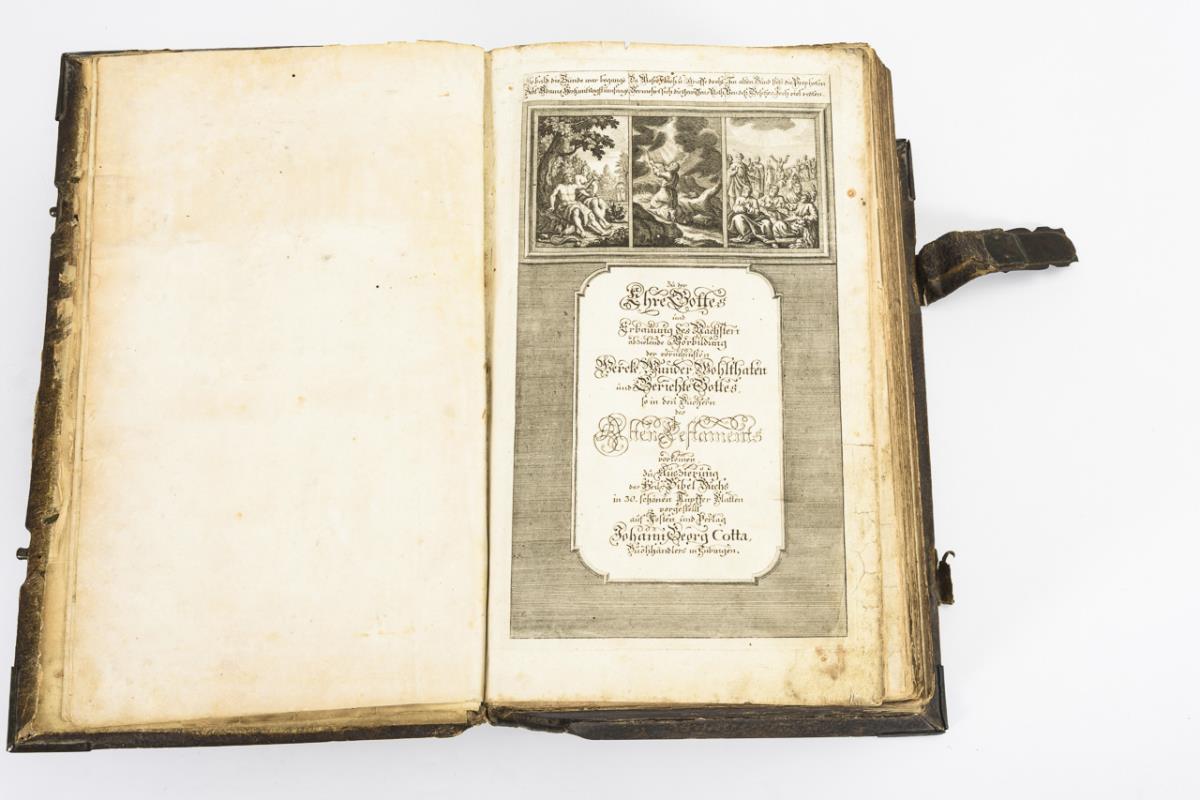 So bald die Sünde war begangen Da Mosis Fluch u. Straffe droht Im alten Bund hört die Propheten
Zu der
Ehre Gottes
und
Erbauung des Nächsten
abzielende Vorbildung
der vornehmsten
Wercke Wunder Wohlthaten
und Gerichte Gottes,
so in den Büchern
des
Alten Testaments
vorkomen,
zu Auszierung
des Heil. Bibel Buchs
in 30. schönen Kupffer Blatten
vorgestellt
auf Kosten und Verlag
Johann Georg Cotta,
Buchhändlers in Tübingen.